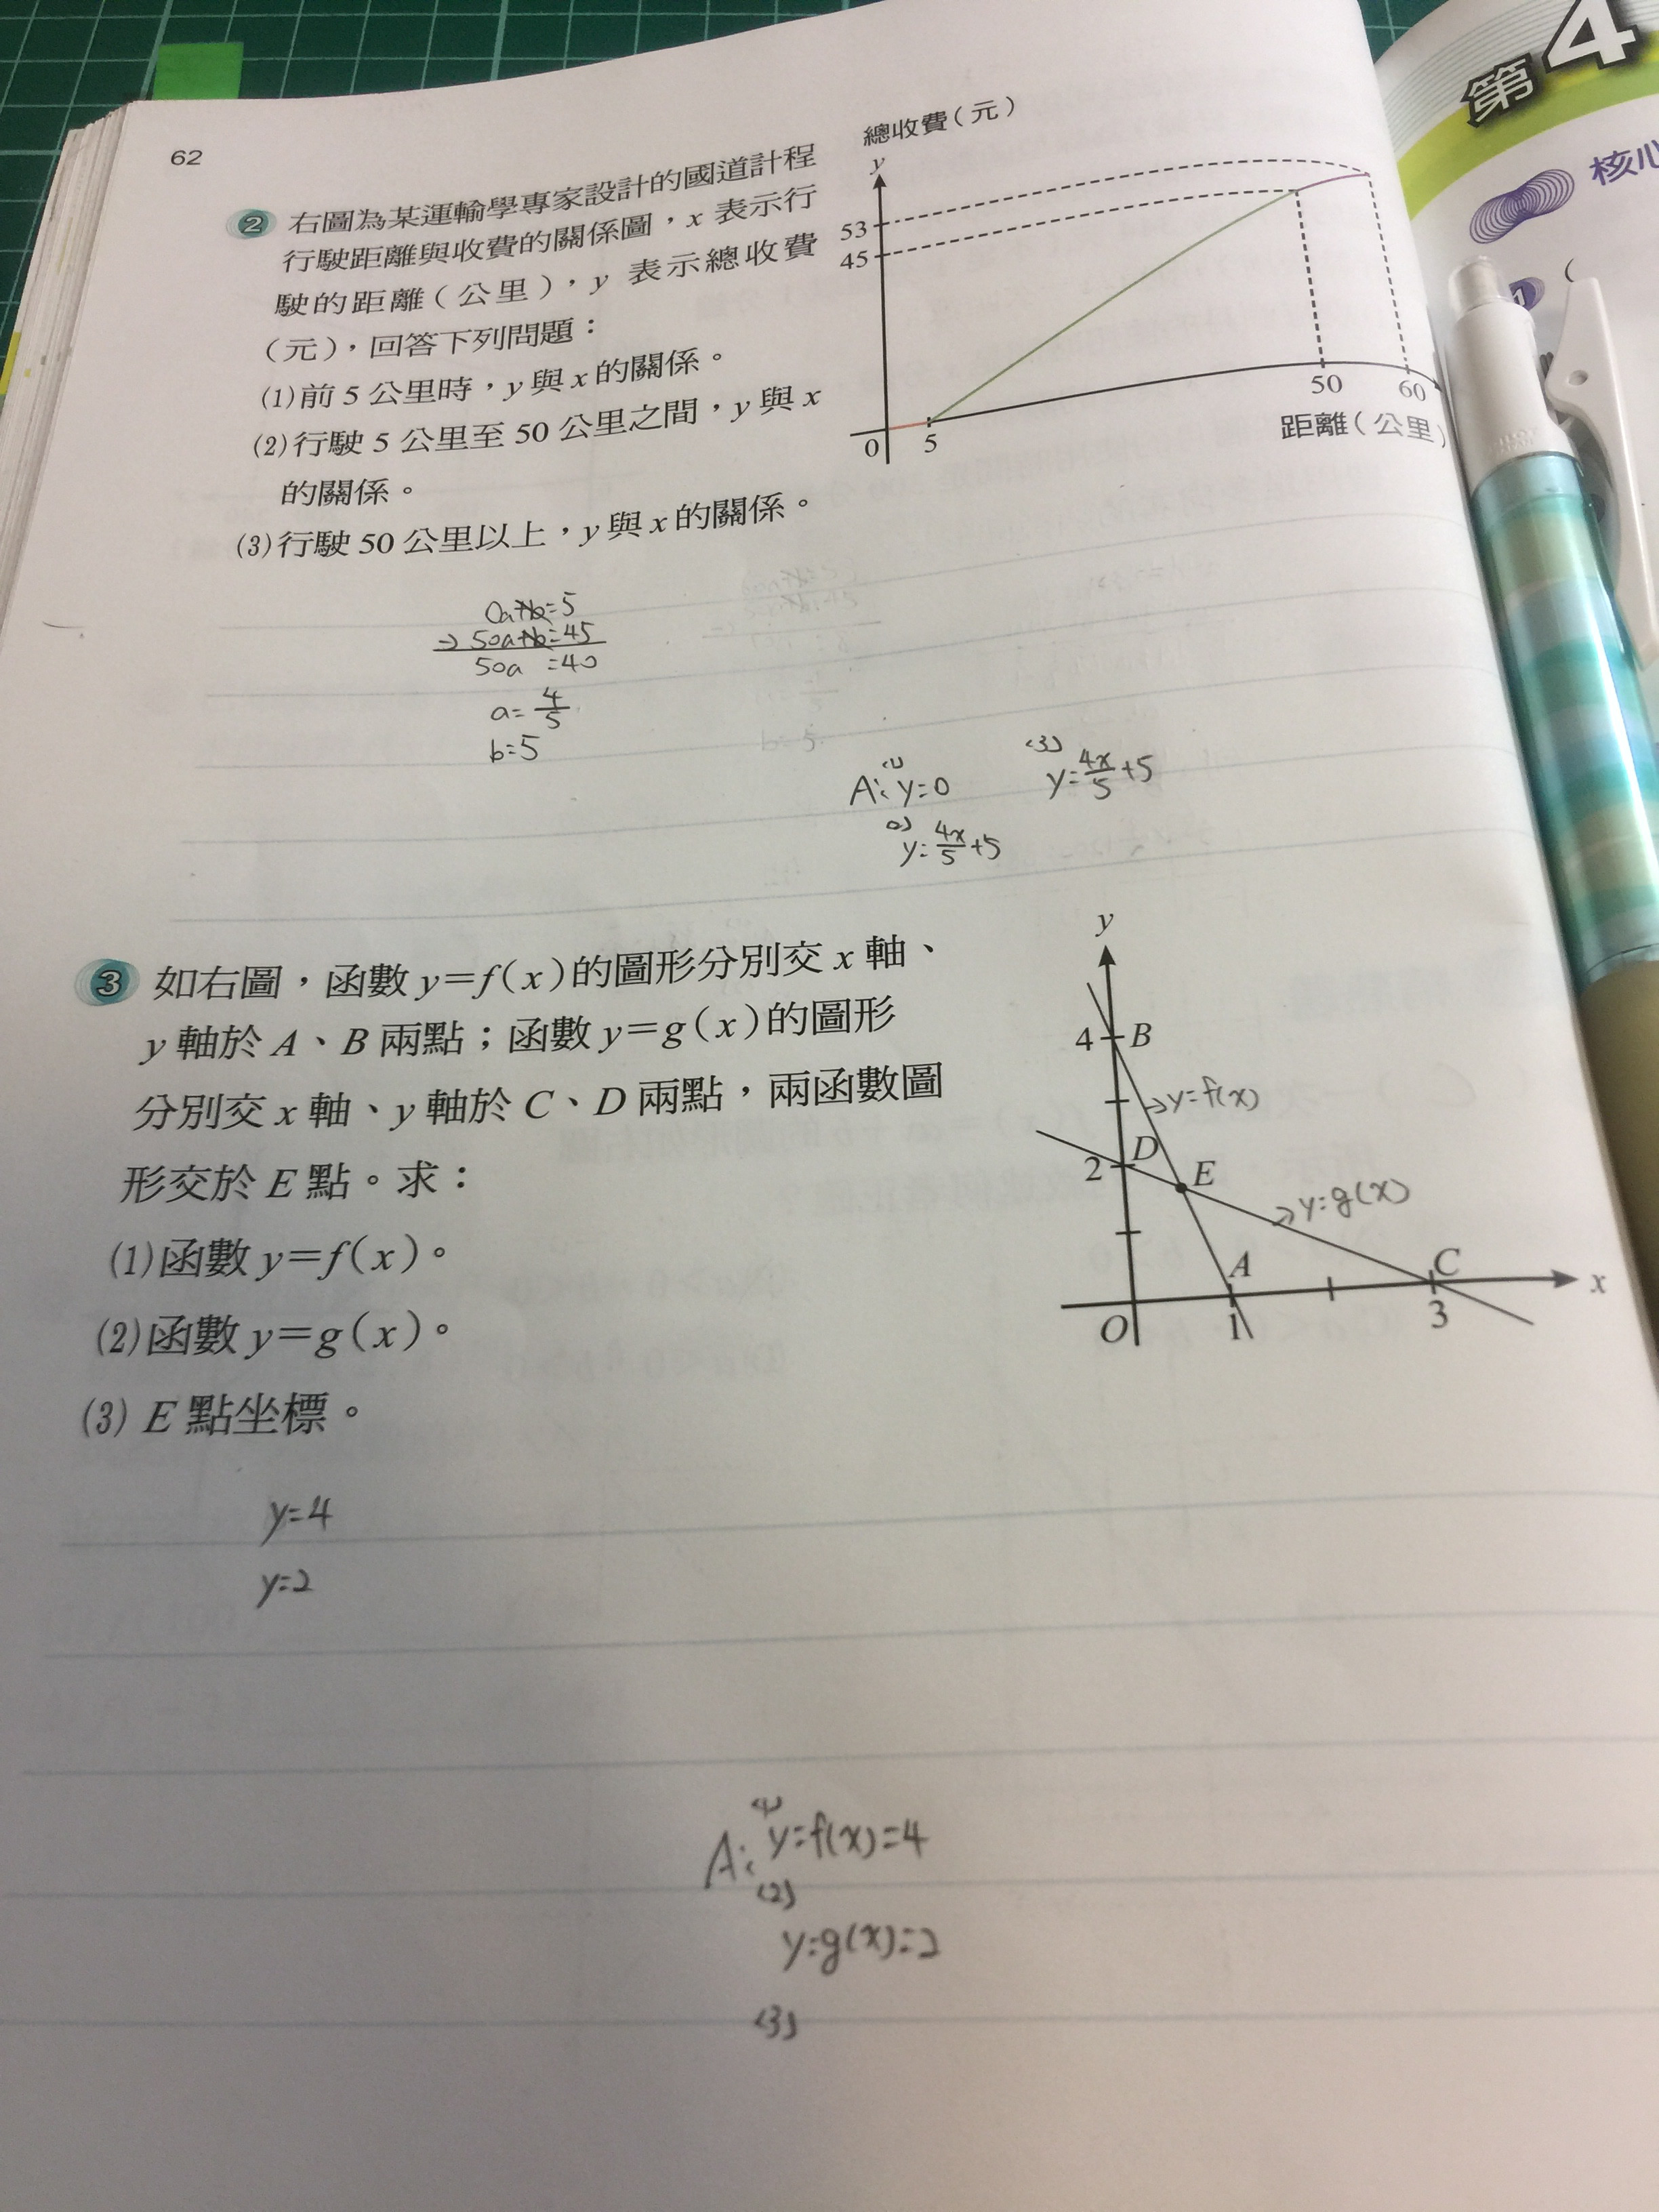 62
2 右圖為某運輸學專家設計的國道計程
行駛距離與收費的關係圖,x 表示行
駛的距離(公里),y 表示總收費
(元),回答下列問題:
(1)前 5 公里時,y 與 x 的關係。
(2)行駛 5 公里至 50 公里之間,y 與 x
的關係。
(3)行駛 50 公里以上,y 與 x 的關係。
總收費(元)
y
53
45
0
5
50
60
距離(公里)
0a+b=5
→50a+b=45
50a =40
a=4/5
b=5
A: (1) y=0
(2) y=4x/5+5
(3) y=4x/5+5
3 如右圖,函數 y=f(x)的圖形分別交 x 軸、
y 軸於 A、B 兩點;函數 y=g(x)的圖形
分別交 x 軸、y 軸於 C、D 兩點,兩函數圖
形交於 E 點。求:
(1)函數 y=f(x)。
(2)函數 y=g(x)。
(3) E 點坐標。
y
4 B
→y=f(x)
2 D
E
→y=g(x)
A
C
x
O
1
3
y=4
y=2
A: (1) y=f(x)=4
(2)
y=g(x)=2
(3)
第4
核心
1 (